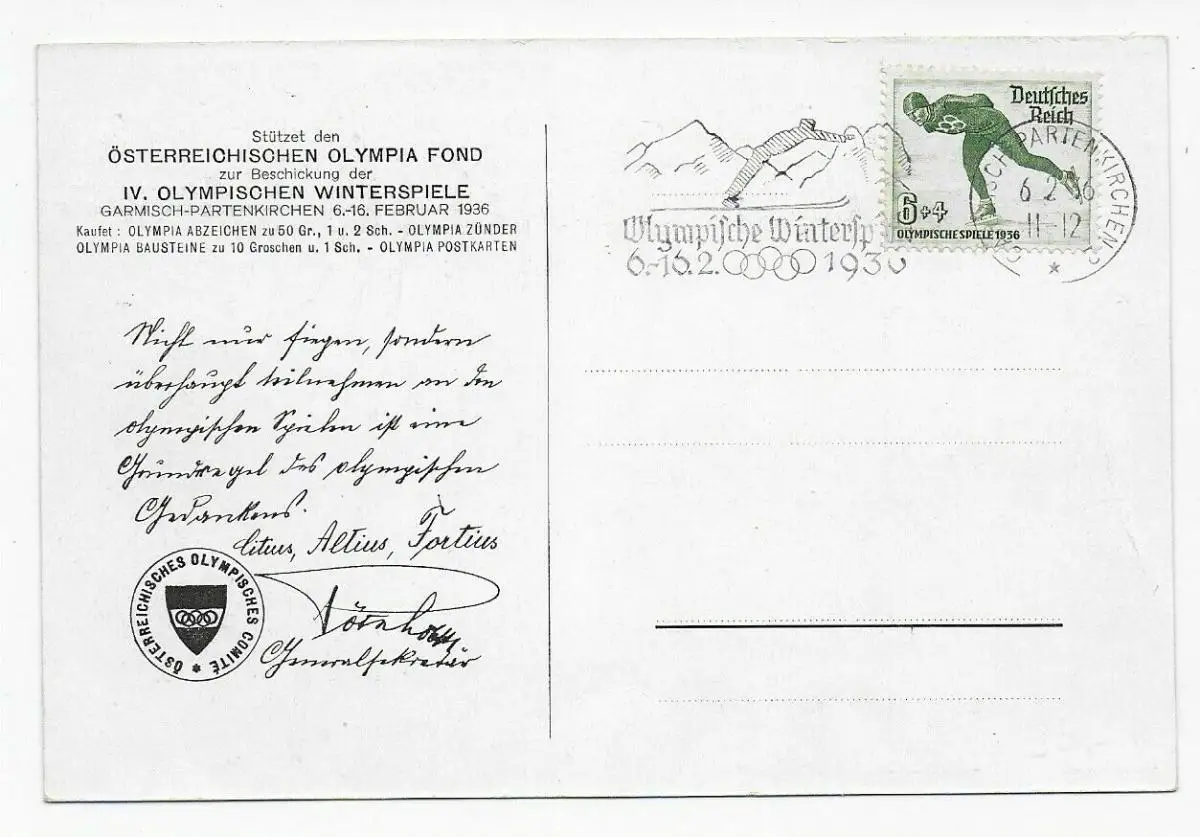 Stützet den
ÖSTERREICHISCHEN OLYMPIA FOND
zur Beschickung der
IV. OLYMPISCHEN WINTERSPIELE
GARMISCH-PARTENKIRCHEN 6.-16. FEBRUAR 1936
Kaufet : OLYMPIA ABZEICHEN zu 50 Gr., 1 u. 2 Sch. - OLYMPIA ZÜNDER
OLYMPIA BAUSTEINE zu 10 Groschen u. 1 Sch. - OLYMPIA POSTKARTEN
Nicht nur siegen, sondern
überhaupt teilnehmen an den
olympischen Spielen ist eine
Grundregel des olympischen
Gedankens.
Citius, Altius, Fortius
Generalsekretär
ÖSTERREICHISCHES OLYMPISCHES COMITÉ *
Olympische Wintersp
6.-16.2. 1936
Deutsches
Reich
6+4
OLYMPISCHE SPIELE 1936
PARTENKIRCHEN
6.2. 6
11-12